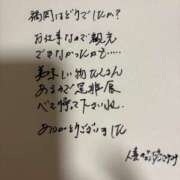 福岡はどうでしたか？
お仕事なので観光
できなかったかも…
美味しい物たくさん
あるので是非食
べて帰って下さいね。
ありがとうございました
人妻の